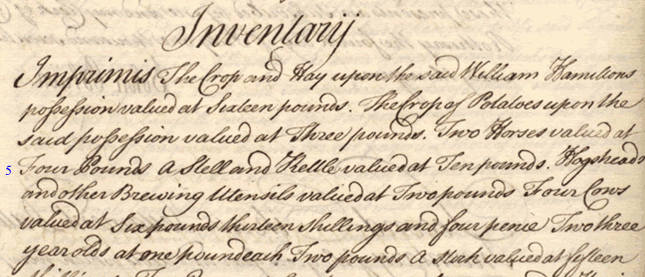 Inventarij
Imprimis The Crop and Hay upon the said William Hamiltons
possession valued at Sixteen pounds. The Crop of Potatoes upon the
said possession valued at Three pounds. Two Horses valued at
5 Four Pounds A Stell and Kettle valued at Ten pounds. Hogsheads
and other Brewing Utensils valued at Two pounds Four Cows
valued at Six pounds thirteen shillings and four pence Two three
year olds at one pound each Two pounds A stack valued at fifteen